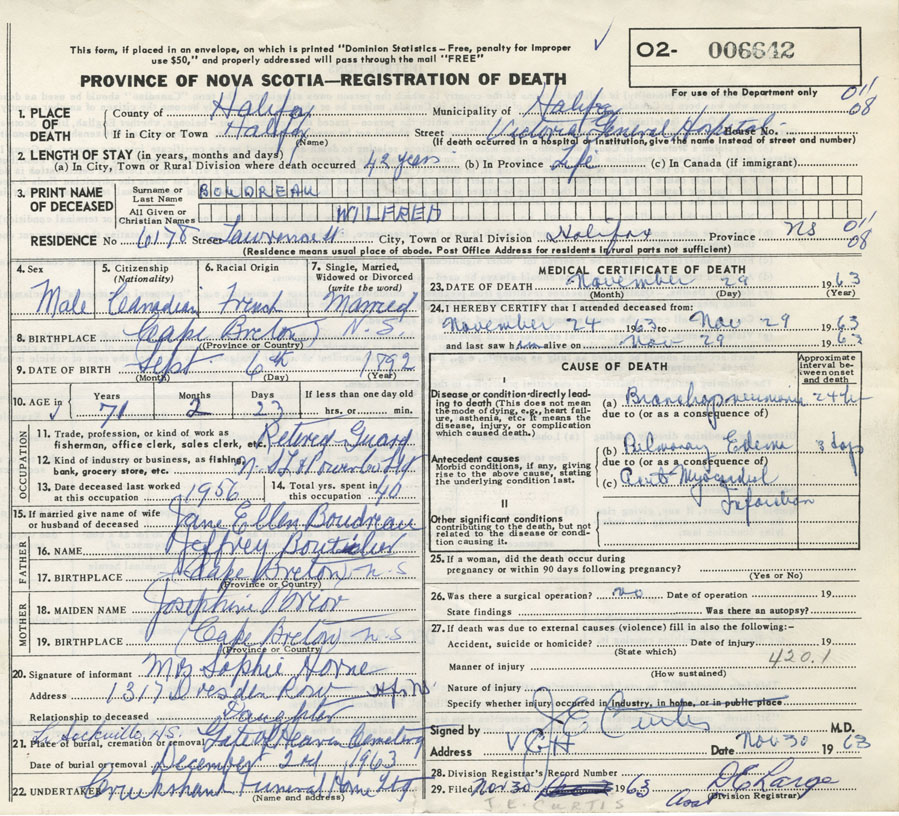 This form, if placed in an envelope, on which is printed "Dominion Statistics – Free, penalty for improper
use $50," and properly addressed will pass through the mail "FREE"
✓
O2- 006642
PROVINCE OF NOVA SCOTIA—REGISTRATION OF DEATH
For use of the Department only
011
08
1. PLACE OF DEATH
County of Halifax Municipality of Halifax
If in City or Town Halifax Street Victoria General Hospital House No.
(Name) (If death occurred in a hospital or institution, give the name instead of street and number)
2. LENGTH OF STAY (in years, months and days)
(a) In City, Town or Rural Division where death occurred 42 years (b) In Province Life (c) In Canada (if immigrant)
3. PRINT NAME OF DECEASED
Surname or Last Name BOUDREAU
All Given or Christian Names WILFRED
RESIDENCE No 6178 Street Lawrence St City, Town or Rural Division Halifax Province NS 011
08
(Residence means usual place of abode. Post Office Address for residents in rural parts not sufficient)
4. Sex Male
5. Citizenship (Nationality) Canadian
6. Racial Origin French
7. Single, Married, Widowed or Divorced (write the word) Married
8. BIRTHPLACE Cape Breton N.S.
(Province or Country)
9. DATE OF BIRTH Sept 6th 1892
(Month) (Day) (Year)
10. AGE in Years Months Days If less than one day old
✓ 71 2 23 hrs. or min.
OCCUPATION
11. Trade, profession, or kind of work as Retired Guard
fisherman, office clerk, sales clerk, etc.
12. Kind of industry or business, as fishing, N.S.L & Power Co Ltd
bank, grocery store, etc.
13. Date deceased last worked at this occupation 1956
14. Total yrs. spent in this occupation 40
15. If married give name of wife or husband of deceased Jane Ellen Boudreau
FATHER
16. NAME Jeffrey
17. BIRTHPLACE Cape Breton N.S
(Province or Country)
MOTHER
18. MAIDEN NAME Josephine
19. BIRTHPLACE Cape Breton N.S
(Province or Country)
20. Signature of informant Mrs Sophie Horne
Address 1317 Dresden Row Hfx NS
Relationship to deceased Daughter
Sackville, N.S.
21. Place of burial, cremation or removal Gate of Heaven Cemetery
Date of burial or removal December 2nd 1963
22. UNDERTAKER Cruikshank Funeral Home Ltd
(Name and address)
MEDICAL CERTIFICATE OF DEATH
23. DATE OF DEATH November 29 1963
(Month) (Day) (Year)
24. I HEREBY CERTIFY that I attended deceased from:
November 24 1963 to Nov 29 1963
and last saw him alive on Nov 29 1963
CAUSE OF DEATH
Approximate interval between onset and death
I
Disease or condition directly leading to death (This does not mean the mode of dying, e.g., heart failure, asthenia, etc. It means the disease, injury, or complication which caused death.)
(a) Bronchopneumonia 24 hr
due to (or as a consequence of)
Antecedent causes
Morbid conditions, if any, giving rise to the above cause, stating the underlying condition last.
(b) Pulmonary Edema 3 days
due to (or as a consequence of)
(c) Acute Myocardial
Infarction
II
Other significant conditions
contributing to the death, but not related to the disease or condition causing it.
25. If a woman, did the death occur during
pregnancy or within 90 days following pregnancy?
(Yes or No)
26. Was there a surgical operation? no Date of operation 19
State findings Was there an autopsy?
27. If death was due to external causes (violence) fill in also the following:–
Accident, suicide or homicide? Date of injury 19
(State which)
420.1
Manner of injury
(How sustained)
Nature of injury
Specify whether injury occurred in industry, in home, or in public place
Signed by J E Curtis M.D.
Address VGH Date Nov 30 1963
28. Division Registrar's Record Number
29. Filed Nov 30 1963
(Division Registrar)
J. E. CURTIS